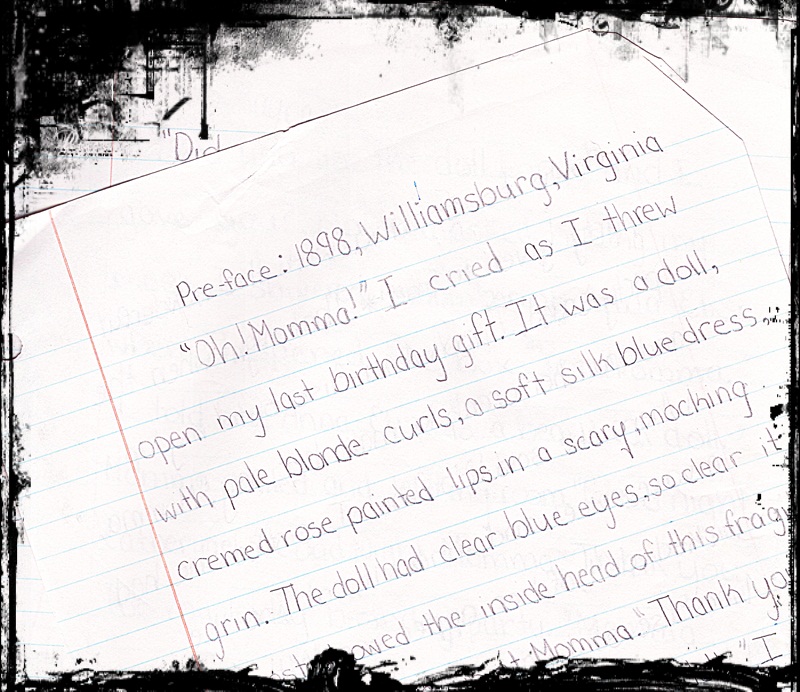 "Did
Pre-face: 1898, Williamsburg, Virginia
"Oh! Momma!" I cried as I threw
open my last birthday gift. It was a doll,
with pale blonde curls, a soft silk blue dress.
cremed rose painted lips. in a scary, mocking
grin. The doll had clear blue eyes, so clear it
owed the inside head of this frag
Momma. "Thank yo
I